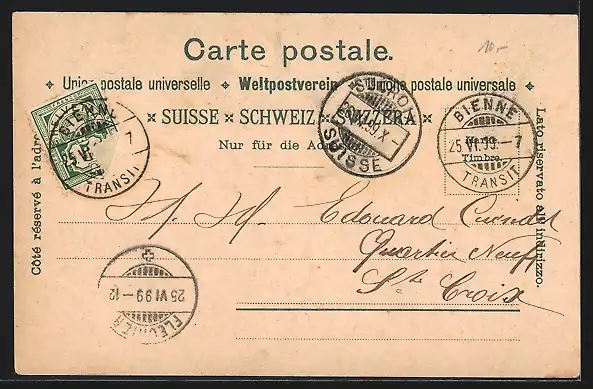 10.-
Carte postale.
Union postale universelle ✦ Weltpostverein ✦ Unione postale universale
× SUISSE × SCHWEIZ × SVIZZERA ×
Nur für die Adresse
Côté réservé à l'adresse
Lato riservato all'indirizzo.
BIENNE
25 VI
7
TRANSIT
Ste CROIX
SUISSE
Timbre.
BIENNE
25 VI 99.- 7
TRANSIT
M. Edouard
Quartier Neuf
Ste Croix
25 VI 99 - 12
FLEURIER